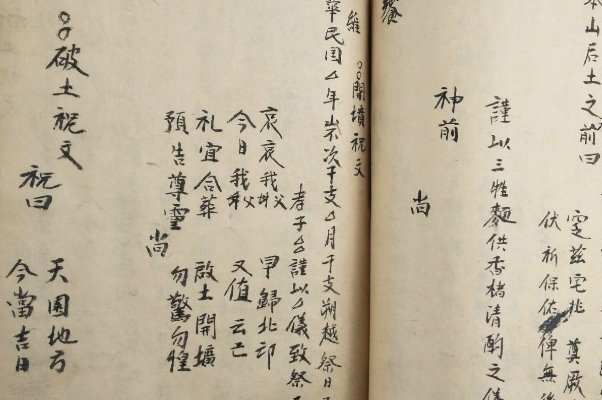 本山后土之前曰
定兹宅兆 奠厥
伏祈保佑俾無後
謹以三牲麵供香楮清酌之儀
神前
尚
饗
○○開墳祝文
維
華民国△年岁次干支△月干支朔越祭日
孝子△△謹以△儀致祭
哀哀我父母 早歸北邙
今日我父母 又值云亡
礼宜合葬 啟土開壙
預告尊靈 勿驚勿惶
尚
○○破土祝文
祝曰
天圓地方
今當吉日